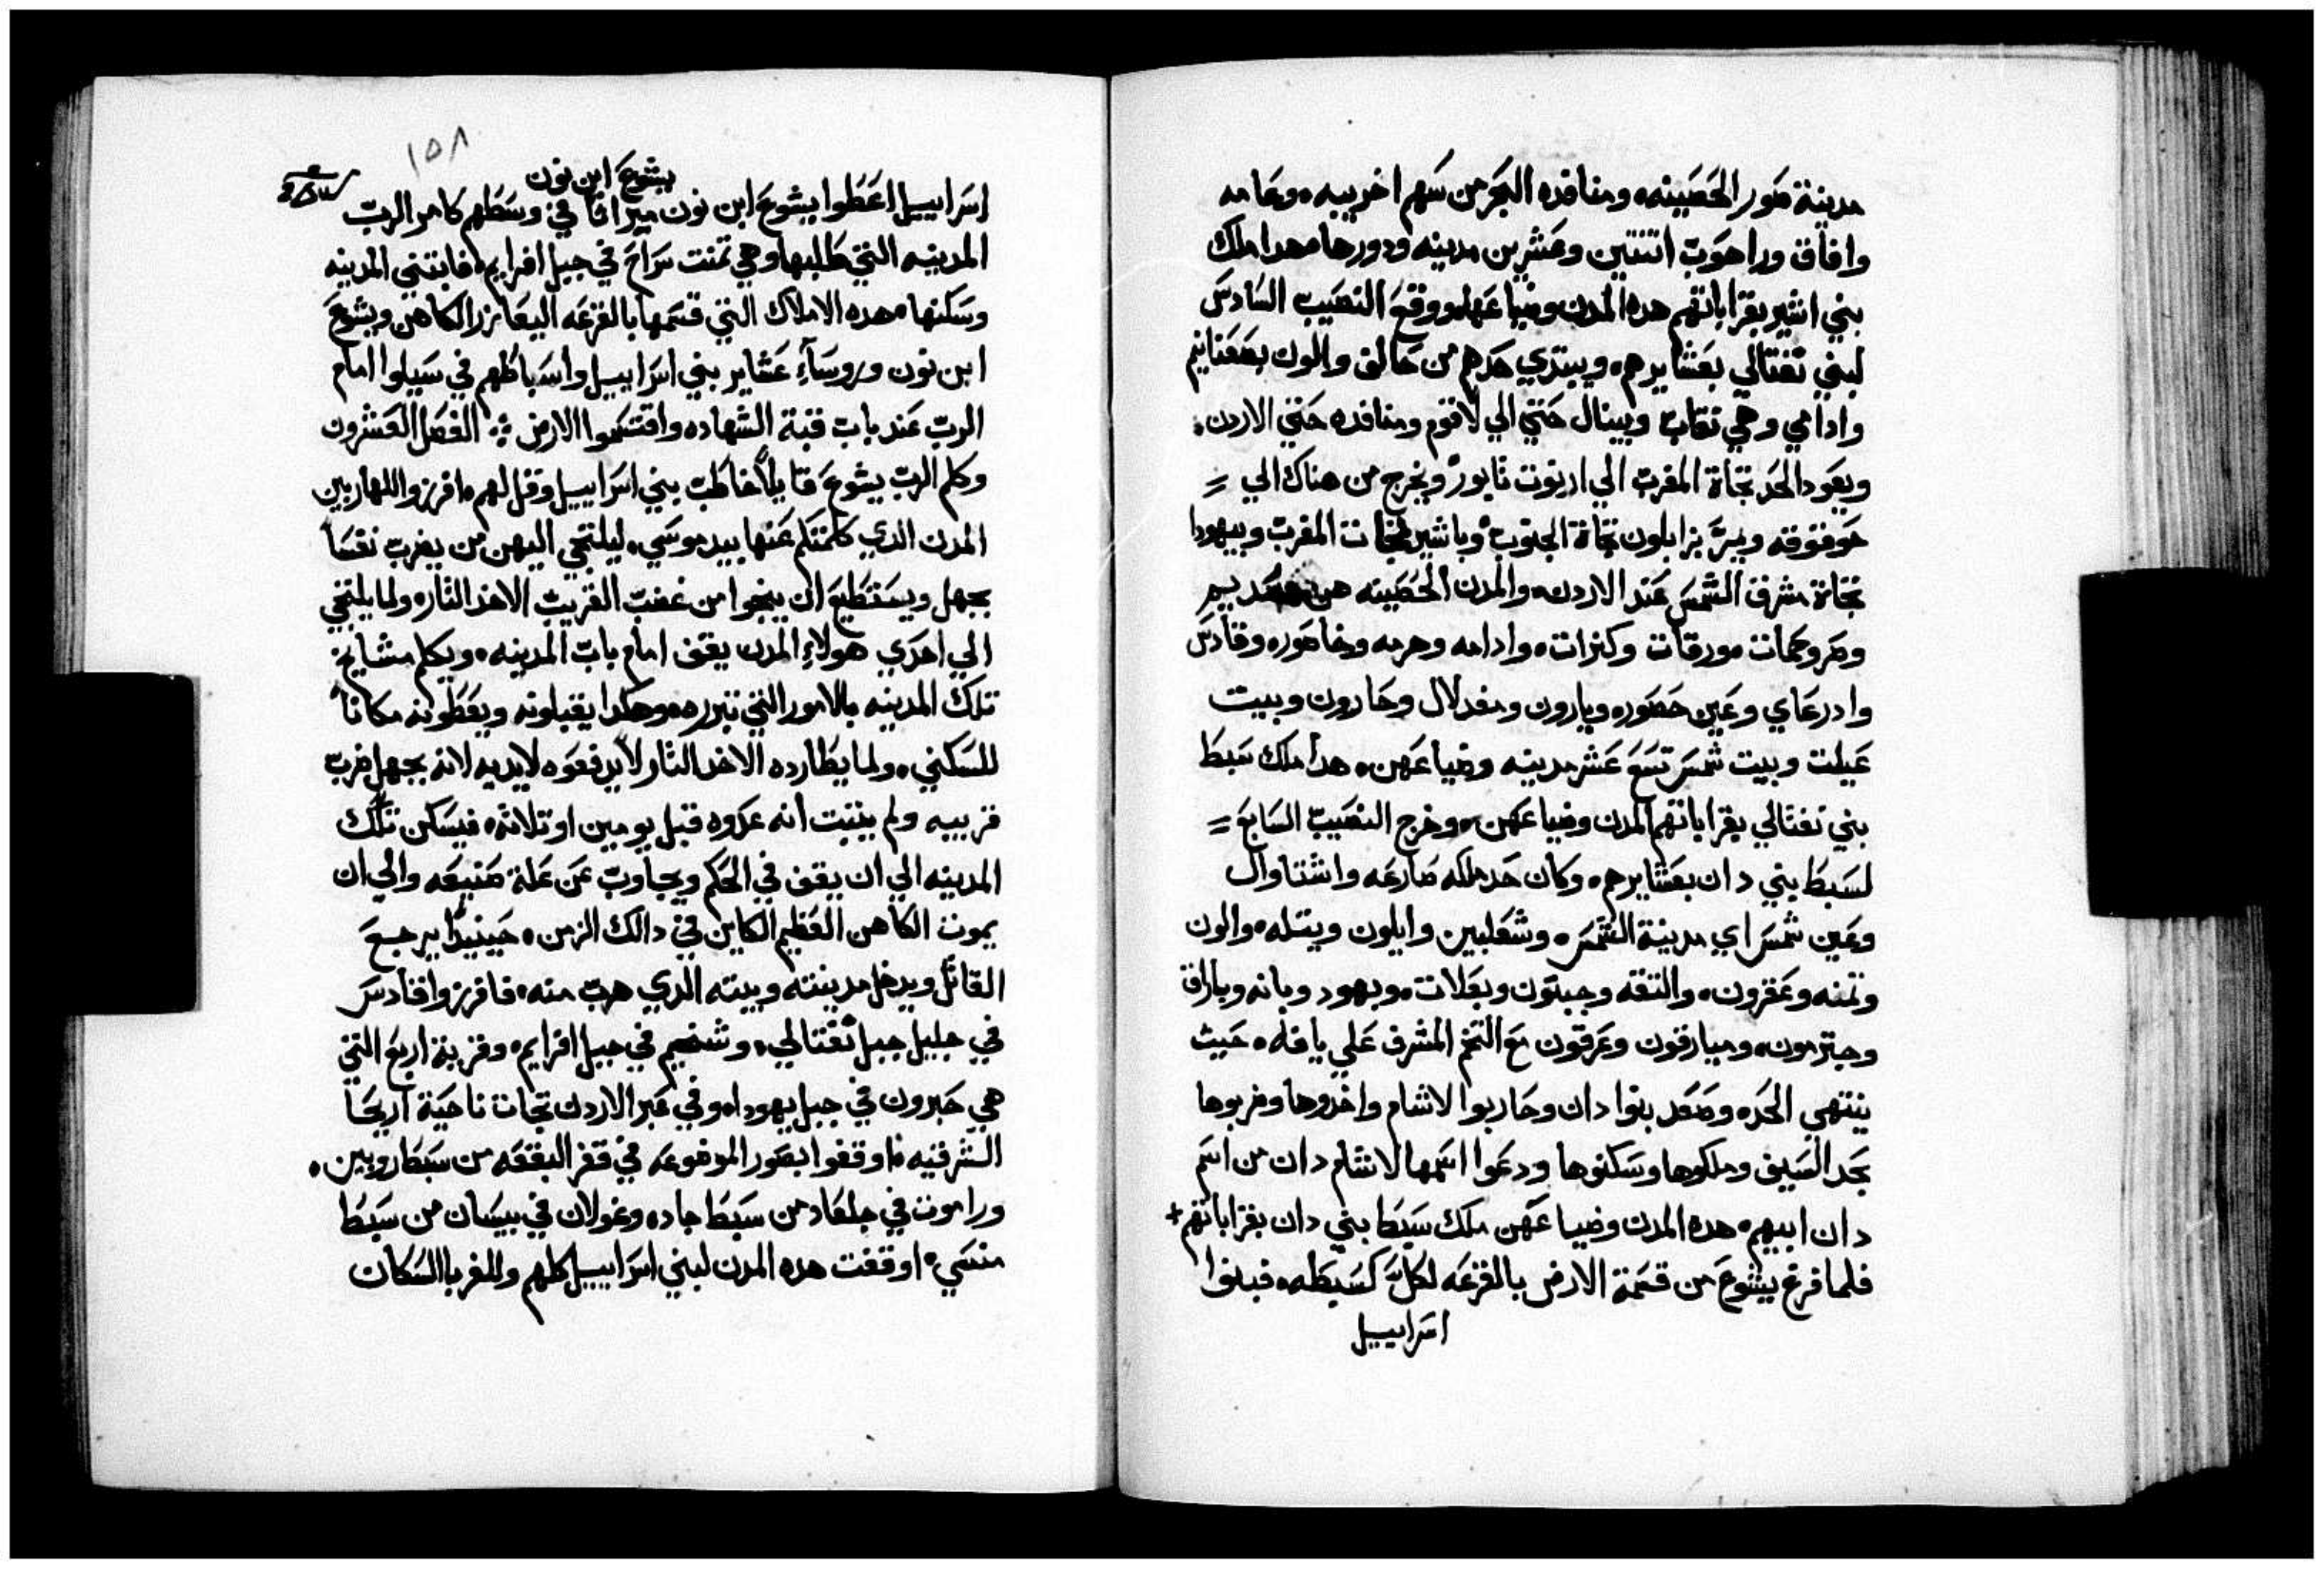 مدينة صور الحصينه، ومنافده البحر من سهم اخزيبه، وعامه
وافاق وراحوب اتنتين وعشرين مدينه ودورها، هدا ملك
بني اشير بقراباتهم هده المدن وضياعها، ووقع النصيب السادس
لبني نفتالي بعشايرهم، ويبتدي حدهم من حالف والون بصعنانيم
وادامي وهي نقاب ويبنال حتي الي لاقوم ومنافده حتي الاردن،
ويعود الحد تجاة المغرب الي ازنوت تابور ويخرج من هناك الي =
حوقوقه ويمر بزابلون تجاة الجنوب وباشير تجات المغرب وبيهودا
تجاة مشرق الشمس عند الاردن، والمدن الحصينه هن
وصر وحمات ورقات وكنرات، وادامه وحرمه وحاصوره وقادس
وادرعاي وعين حصوره ويارون ومغدلال وحارون وبيت
عيلت وبيت شمس تسع عشر مدينه وضياعهن، هدا ملك سبط
بني نفتالي بقراباتهم المدن وضياعهن، وخرج النصيب السابع =
لسبط بني دان بعشايرهم، وكان حد ملكه صارعه واشتاوال
وعين شمس اي مدينة الشمس، وشعلبين وايلون ويتله، والون
وتمنه وعقرون، والتقه وجبتون وبعلات، ويهود وبانه وباراق
وجترمون، وميارقون وعرقون مع التخم المشرف علي يافله، حيث
ينتهي الحد، وصعد بنوا دان وحاربوا لاشام واخدوها وضربوها
بحد السيف وملكوها وسكنوها ودعوا اسمها لاشام دان من اسم
دان ابيهم، هده المدن وضياعهن ملك سبط بني دان بقراباتهم+
فلما فرغ يشوع من قسمة الارض بالقرعه لكل كسبطه، فبنوا
اسراييل
١٥٨
يشوع ابن نون
اسراييل اعطوا يشوع ابن نون ميراثا في وسطهم كامر الرب
المدينه التي طلبها وهي تمنت سراح في جبل افرايم، فابتني المدينه
وسكنها، هده الاملاك التي قسمها بالقرعه اليعازر الكاهن ويشوع
ابن نون وروسآء عشاير بني اسراييل واسباطهم في سيلوا امام
الرب عند باب قبة الشهاده واقتسموا الارض ܀ الفصل العشرون
وكلم الرب يشوع قايلاً خاطب بني اسراييل وقل لهم، افرزوا للهاربين
المدن الدي كلمتكم عنها بيد موسي، ليلتجي اليهن من يضرب نفسا
بجهل ويستطيع ان ينجوا من غضب القريب الاخد التار، ولما يلتجي
الي احدي هولاء المدن يقف امام باب المدينه، ويكلم مشايخ
تلك المدينه بالامور التي تبرره، وهكدا يقبلونه ويعطونه مكانا
للسكني، ولما يطارده الاخد التار لا يدفعوه لايديه لانه بجهل ضرب
قريبه ولم يتبت انه عدوه قبل يومين او تلاته، فيسكن تلك
المدينه الي ان يقف في الحكم ويجاوب عن علة صنيعه والي ان
يموت الكاهن العظيم الكاين في دالك الزمن، حينيدا يرجع
القاتل ويدخل مدينته وبيته الدي هرب منه، فافرزوا قادس
في جليل جبل نفتالي، وشخيم في جبل افرايم، وقرية اربع التي
هي حبرون في جبل يهودا، وفي عبر الاردن تجات ناحية اريحا
الشرقيه فاوقفوا بصور الموضوعه في قفر البقعه من سبط روبين،
وراموت في جلعاد من سبط جاد، وغولان في بيسان من سبط
منسي، اوقفت هده المدن لبني اسراييل كلهم وللغربا السكان